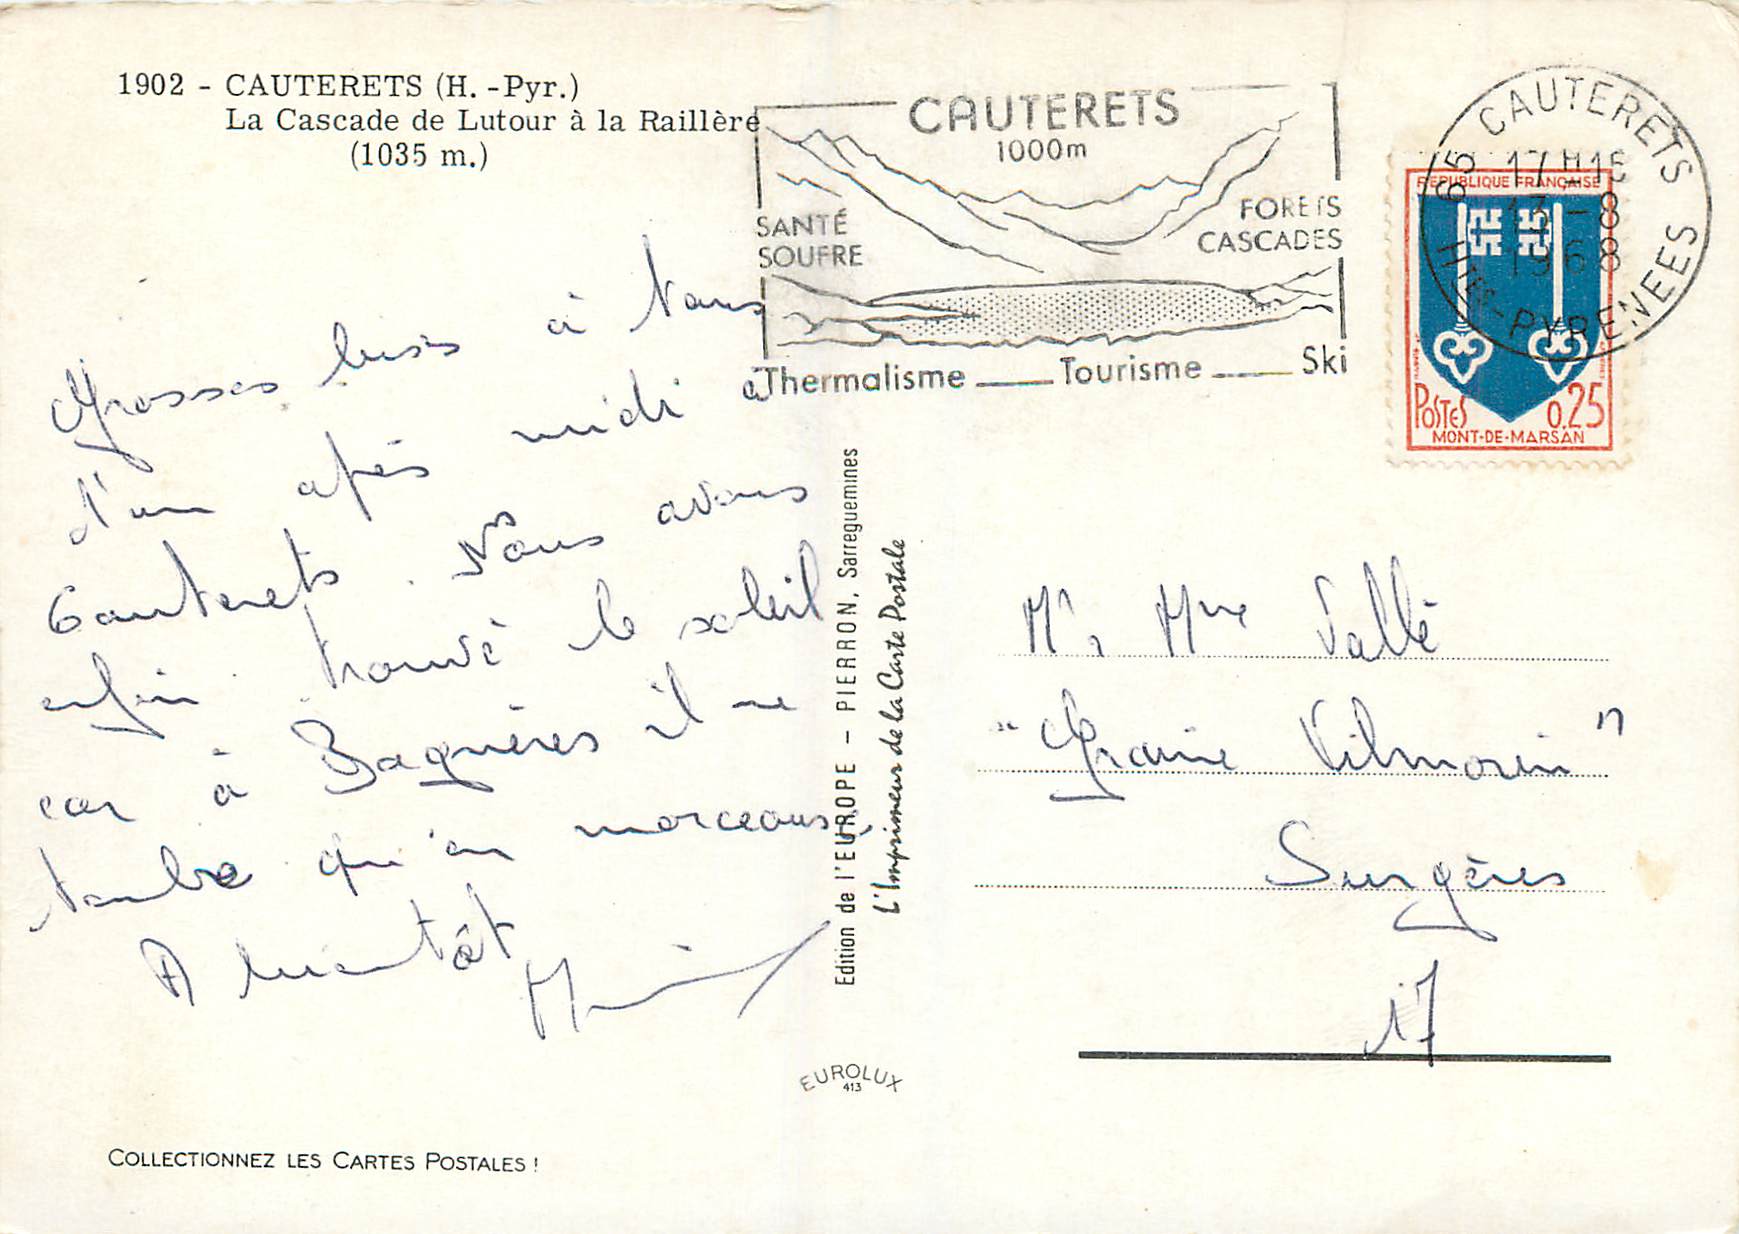 1902 - CAUTERETS (H. -Pyr.)
La Cascade de Lutour à la Raillère
(1035 m.)
CAUTERETS
1000m
SANTÉ
SOUFRE
FORETS
CASCADES
Thermalisme Tourisme Ski
65 CAUTERETS
17H15
13-8
1968
HTES-PYRENEES
REPUBLIQUE FRANÇAISE
POSTES 0,25
MONT-DE-MARSAN
Grosses bises à tous
d'un après midi à
Cauterets. Nous avons
enfin trouvé le soleil
car à Bagnères il ne
tombe qu'en morceaux.
A bientôt
Edition de l'EUROPE - PIERRON, Sarreguemines
L'Imprimeur de la Carte Postale
Mr, Mme Vallé
"Graine Vilmorin"
Surgères
17
EUROLUX
413
COLLECTIONNEZ LES CARTES POSTALES !